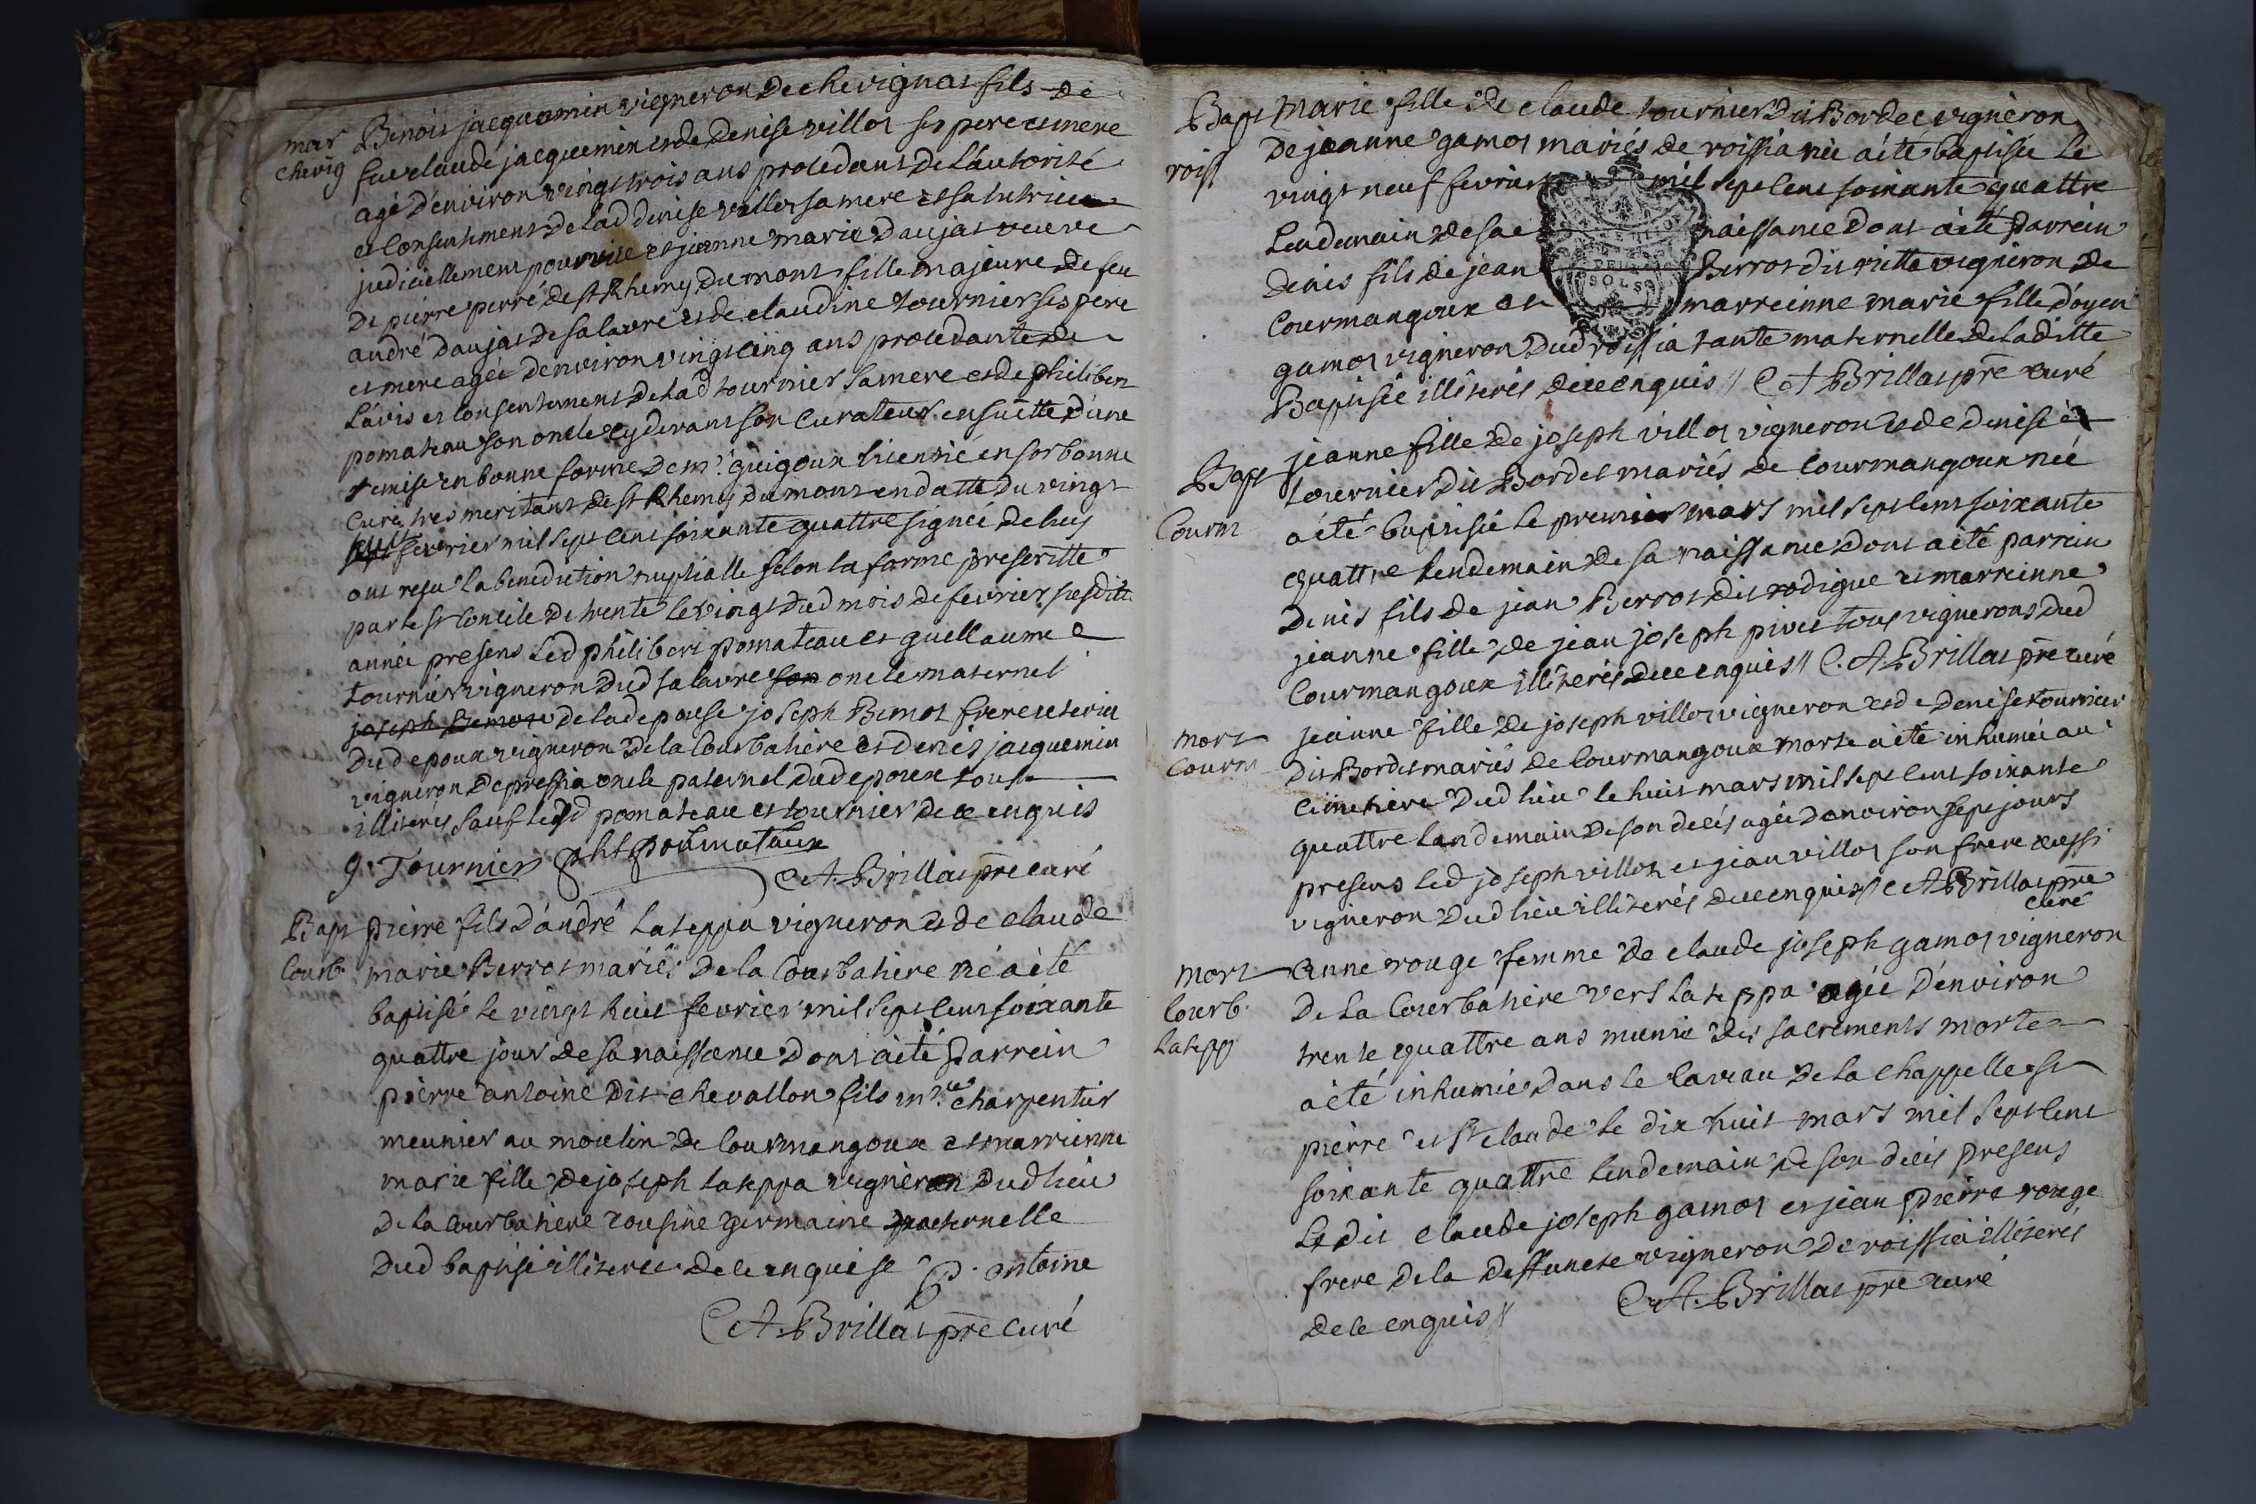 mar
chevig
Benoit jacquemin vigneron de chevignat fils de
feu claude jacquemin et de denise villot ses pere et mere
agé d'environ vingt trois ans procedant de l'autorité
et consentement de lad denise villot sa mere et sa tutrice
judiciellement pourvüe et jeanne marie daujat veuve
de pierre perré de st Rhemy du mont fille majeure de feu
andré daujat de salavre et de claudine tournier ses pere
et mere agée denviron vingt cinq ans procedante de
l'avis et consentement de lad tournier sa mere et de philibert
pomateau son oncle cy devant son curateur ensuitte d'une
remise en bonne forme de mr guigoux licentié en sorbonne
curé tres meritant de st Rhemy du mont en datte du vingt
fevrier mil sept cent soixante quattre signée de luy
ont reçu la benediction nuptialle selon la forme prescritte
par le st concile de trente le vingt dud mois de fevrier susditte
année presens led philibert pomateau et guellaume
tournier vigneron dud salavre son oncle maternel
joseph Bemot de lad epouse joseph Bemot frere uterin
dud epoux vigneron de la Courbatiere et denis jacquemin
vigneron de pressia oncle paternel dud epoux tous
illiterés sauf lesd pomateau et tournier de ce enquis
g. Tournier pht poumataux
C A Brillat pre curé
Bapt
Courb.
pierre fils d'andré lateppa vigneron et de claude
marie Berrot mariés de la Courbatiere né a été
baptisé le vingt huit fevrier mil sept cent soixante
quattre jour de sa naissance dont a été parrein
pierre antoine dit chevallon fils mre charpentier
meunier au moulin de courmangoux et marrienne
marie fille de joseph lateppa vigneron dud lieu
de la courbatiere cousine germaine paternelle
dud baptisé illiteree de ce enquise P. antoine
C A Brillat pre curé
Bapt
roiss
Marie fille de claude tournier dit Bordet vigneron
de jeanne gamot mariés de roissia née a été baptisée le
vingt neuf fevrier mil sept cent soixante quattre
lendemain de sa naissance dont a été parrein
denis fils de jean Berrot dit vitta vigneron de
courmangoux et marreinne marie fille d'oyen
gamot vigneron dud roissia tante maternelle de laditte
Baptisée illiterés de ce enquis // C A Brillat pre curé
Bapt
Courm
jeanne fille de joseph villot vigneron et de denise
tournier dit Bordet mariés de courmangoux née
a été baptisée le premier mars mil sept cent soixante
quattre lendemain de sa naissance dont a été parrein
denis fils de jean Berrot dit rodigue et marreinne
jeanne fille de jean joseph pivet tous vignerons dud
Courmangoux illiterés de ce enquis // C. A. Brillat pre curé
mort
Courm
jeanne fille de joseph villot vigneron et de denise tournier
dit Bordet mariés de courmangoux morte a été inhumée au
cimetiere dud lieu le huit mars mil sept cent soixante
quattre landemain de son decés agée d'environ sept jours
presens led joseph villot et jean villot son frere aussi
vigneron dud lieu illiterés de ce enquis // C A Brillat pre
curé
mort
Courb.
latepp
Anne rouge femme de claude joseph gamot vigneron
de la Courbatiere vers lateppa agée d'environ
trente quattre ans munie des sacrements morte
a été inhumée dans le caveau de la chappelle st
pierre et st claude le dix huit mars mil sept cent
soixante quattre lendemain de son décés presens
ledit claude joseph gamot et jean pierre rouge
frere de la deffuncte vigneron de roissia illiterés
de ce enquis // C. A. Brillat pre curé